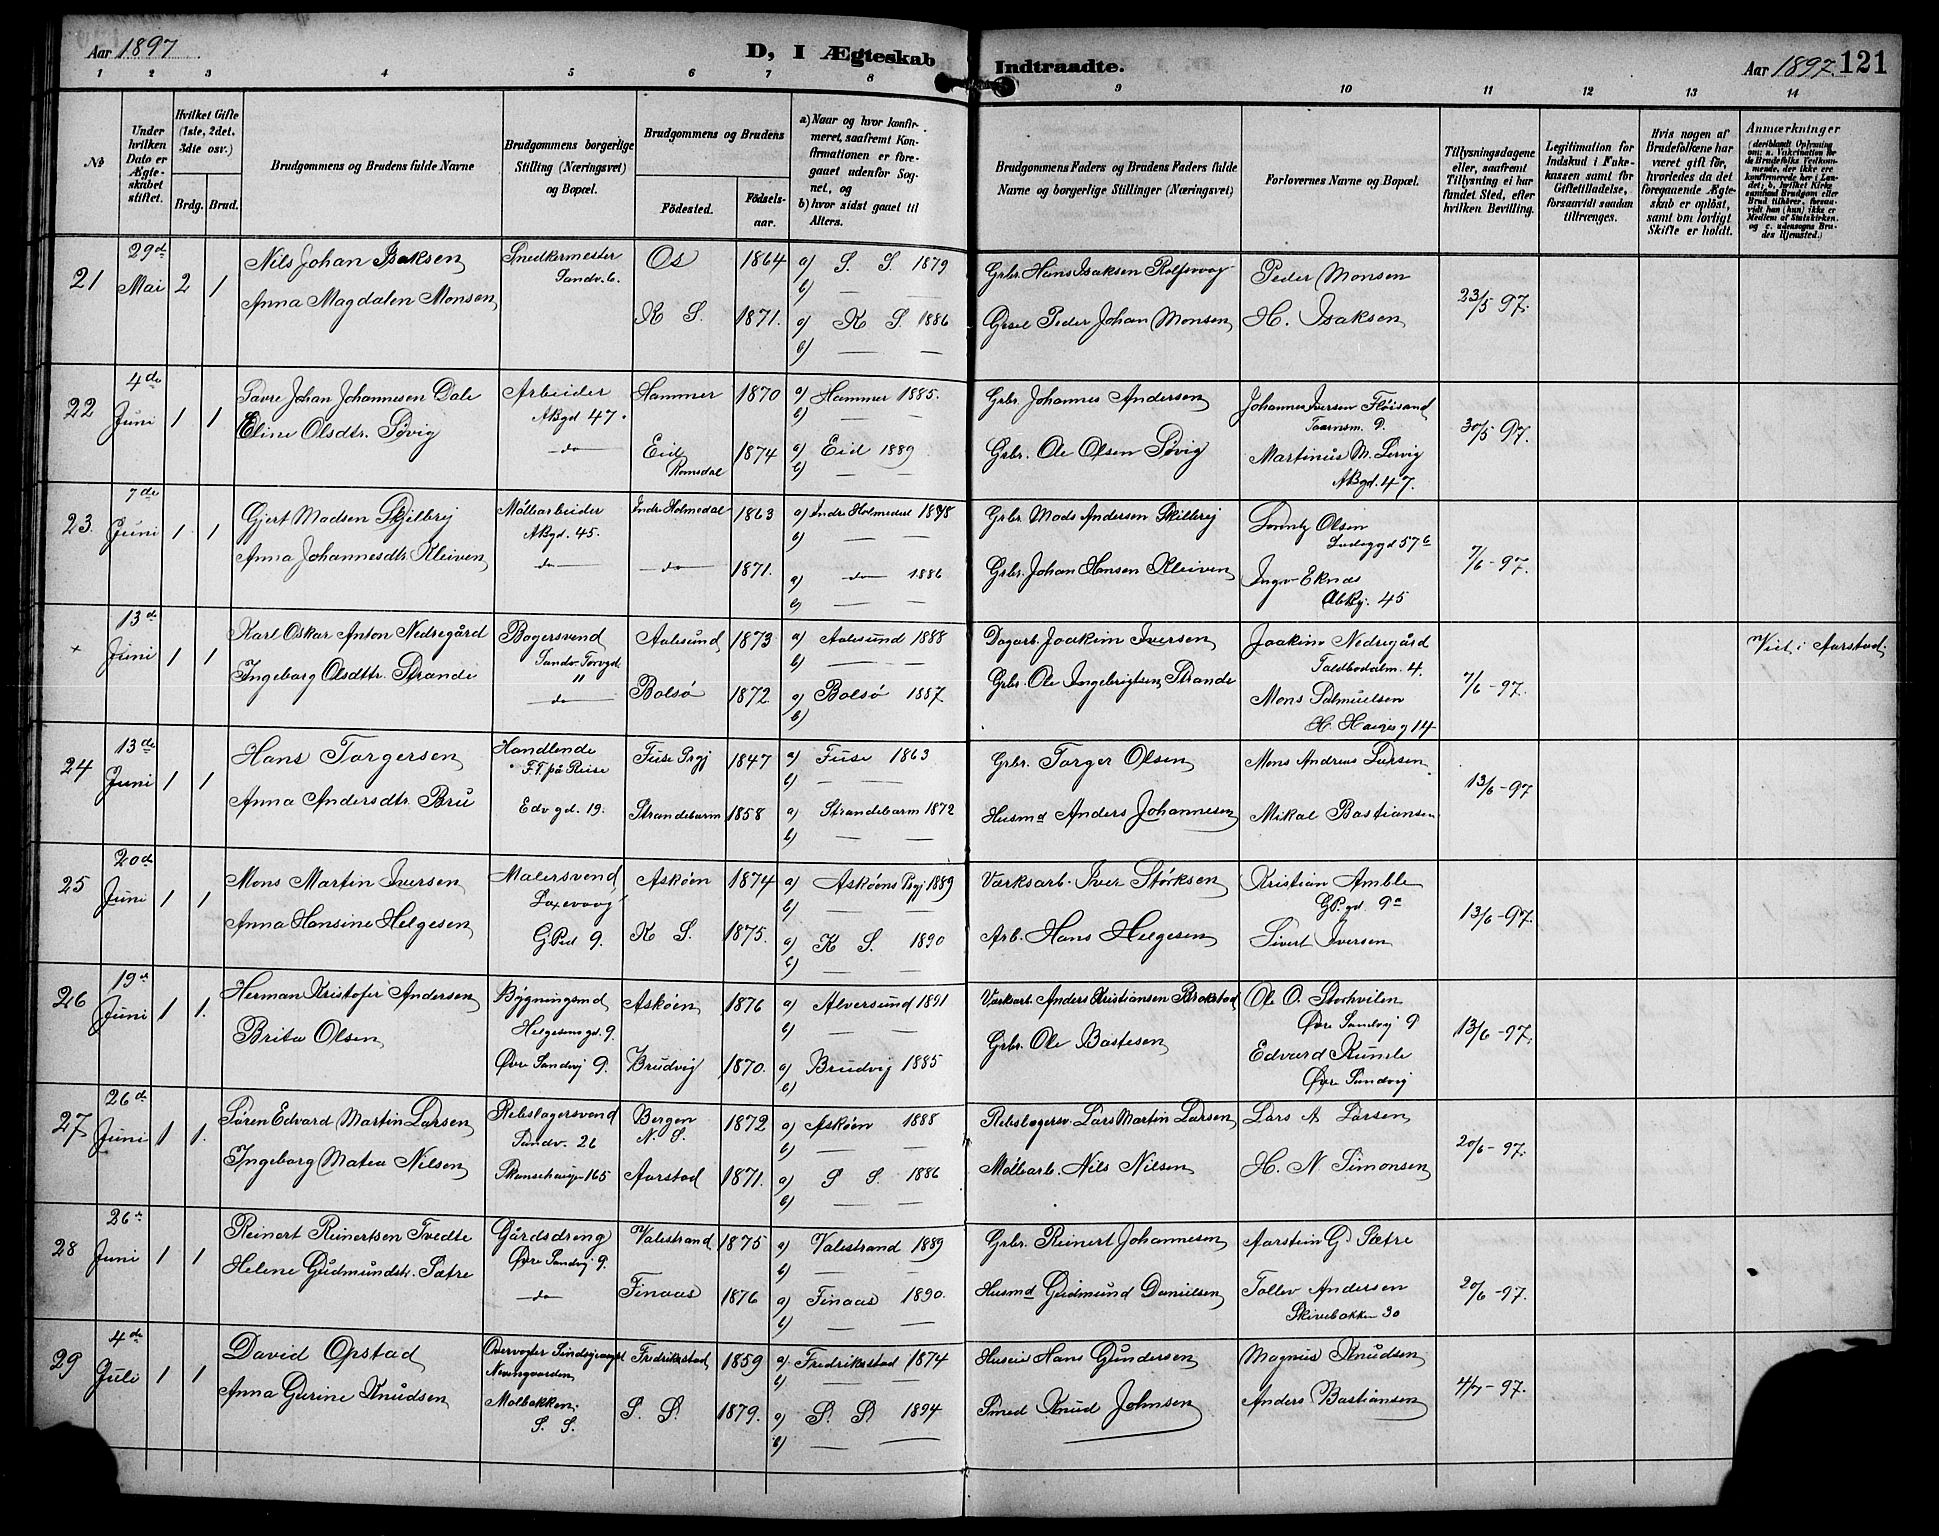 Aar 1897
D, I Ægteskab
Indtraadte.
Aar 1897. 121
1 2 3 4 5 6 7 8 9 10 11 12 13 14
No
Under hvilken Dato er Ægteskabet stiftet.
Hvilket Gifte (1ste, 2det, 3die osv.)
Brdg. Brud.
Brudgommens og Brudens fulde Navne
Brudgommens borgerlige Stilling (Næringsvei) og Bopæl.
Brudgommens og Brudens
Fødested.
Fødselsaar.
a) Naar og hvor konfirmeret, saafremt Konfirmationen er foregaaet udenfor Sognet, og
b) hvor sidst gaaet til Alters.
Brudgommens Faders og Brudens Faders fulde Navne og borgerlige Stillinger (Næringsvei)
Forlovernes Navne og Bopæl.
Tillysningsdagene eller, saafremt Tillysning ei har fundet Sted, efter hvilken Bevilling.
Legitimation for Indskud i Enkekassen samt for Giftetilladelse, forsaavidt saadan tiltrænges.
Hvis nogen af Brudefolkene har været gift før, hvorledes da det foregaaende Ægteskab er opløst, samt om lovligt Skifte er holdt.
Anmærkninger
21 29de Mai 2 1 Nils Johan Isaksen Snedkermester Sandv. 6. Os 1864 a) S. S. 1879 b) — Grbr. Hans Isaksen Rolfsvaag Peder Monsen 23/5 97.
Anna Magdalen Monsen K S. 1871. a) K S. 1886 b) — Gesel Peder Johan Monsen H. Isaksen
22 4de Juni 1 1 Tavre Johan Johannesen Dale Arbeider AKgd 47. Hammer 1870 a) Hammer 1885. b) — Grbr. Johannes Andersen Johannes Iversen Fløisand Taarnsm. 9. 30/5 97.
Eline Olsdtr. Søvig — do — Eid Romsdal 1874 a) Eid 1889 b) — Grbr. Ole Olsen Søvig Martinus M. Lervig AKgd. 47.
23. 7de Juni 1 1 Gjert Madsen Skjilbrej Møllearbeider AKgd. 45. Indr. Holmedal 1863 a) Indre Holmedal 1878 b) — Grbr. Mads Andersen Skilbrej Lorentz Olsen Ladegyd 57b 7/6 - 97.
Anna Johannesdtr. Kleiven — do — — do — 1871. a) — do — 1886 b) — Grbr. Johan Hansen Kleiven Ingv. Eknes 45
+ 13de Juni 1 1 Karl Oskar Anton Nedregård Bagersvend Sandv. Torvgd " Aalesund 1873 a) Aalesund 1888 b) — Dagarb. Joakim Iversen Joakim Nedregård 4. 7/6 - 97. Viet i Aarstad.
Ingeborg Olsdtr. Strande — do — Bolsø 1872 a) Bolsø 1887 b) Grbr. Ole Ingebrigtsen Strande Mons Samuelsen H. Haugsg 14
24 13de Juni 1 1 Hans Torgersen Handlende F.T. på Reise Fuse Prgj 1847 a) Fuse 1863 b) — Grbr. Torger Olsen Mons Andreas Larsen 13/6 - 97
Anna Andersdtr. Bru Edv gd. 19. Strandebarm 1858 a) Strandebarm 1872 b) — Husmd Anders Johannesen Mikal Bastiansen
25 20de Juni 1 1 Mons Martin Iversen Malersvend Laxevaag Askøen 1874 a) Askøens Prgj 1889 b) — Værksarb. Iver Størksen Kristian Amble GP. gd. 9a 13/6 - 97.
Anna Hansine Helgesen G.Pgd 9. K S. 1875. a) K S. 1890 b) — Arb. Hans Helgesen Sivert Iversen
26 19de Juni 1 1. Herman Kristofer Andersen Bygningsmd Helgesens gd. 9. Askøen 1876 a) Alversund 1891 b) — Værksarb. Anders Kristiansen Brokstad Ole O. Storhvilen Øvre Sandvg 9 13/6 - 97.
Brita Olsen Øvre Sandvg 9. Brudvig 1870. a) Brudvig 1885 b) — Grbr. Ole Bastesen Edvard Kumle Øvre Sandvg
27 26de Juni 1 1. Søren Edvard Martin Larsen Rebslagersvend Sandv. 26 Bergen N. S. 1872 a) Askøen 1888 b) — Rebslagersv. Lars Martin Larsen Lars A Larsen 20/6 - 97.
Ingeborg Matea Nilsen 165 Aarstad 1871. a) S S. 1886 b) — Møllearb. Nils Nilsen H. N Simonsen
28 26de Juni 1 1 Reinert Reinertsen Tvedte Gårdsdreng Øvre Sandvg 9. Valestrand 1875 a) Valestrand 1889 b) — Grbr. Reinert Johannesen Aarstein G. Sætre 20/6 - 97.
Helene Gudmundsdr. Sætre — do Finaas 1876 a) Finaas 1890. b) — Husmd Gudmund Danielsen Tollev Andersen Skivebakken 30
29 4de Juli 1 1 David Opstad Nevengaarden Fredriksstad 1859 a) Fredriksstad 1874 b) — Huseier Hans Gundersen Magnus Knudsen 4/7 - 97.
Anna Gurine Knudsen Mølbakken S. S. S. S. 1879. a) S. S. 1894 b) — Smed Knud Johnsen Anders Bastiansen